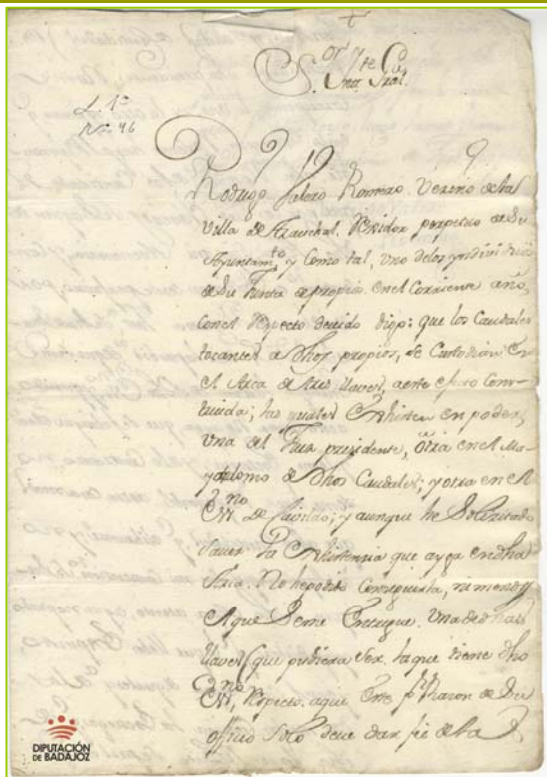 S.or Yte
Gral.
L. 1º
Nº. 46
Rodrigo Valero Romero Vecino de la
Villa de Azauchal, Rexidor perpetuo de Su
Ayuntam.to y como tal, uno de los yndividuos
de Su Junta de propios en el Corriente año,
con el Respecto devido digo: que los Caudales
tocantes a dhos propios, se Custodian en
el Arca de tres llaves, a este efecto Cons-
truida; las quales Exhisten en poder,
una del Juez presidente, otra en el Ma-
yordomo de dhos Caudales; y otra en el
Essno de Cavildo; y aunque he Solizitado
saver la Exhistencia que aya en dha
Arca. No he podido Conseguirla, ni menos
el que Seme Entregue. Una de dhas
llaves (que pudiera ser la que tiene dho
Essno, Respecto, aque Este p.r Razon de Su
offizio Solo deve dar fee de la
DIPUTACIÓN
DE BADAJOZ